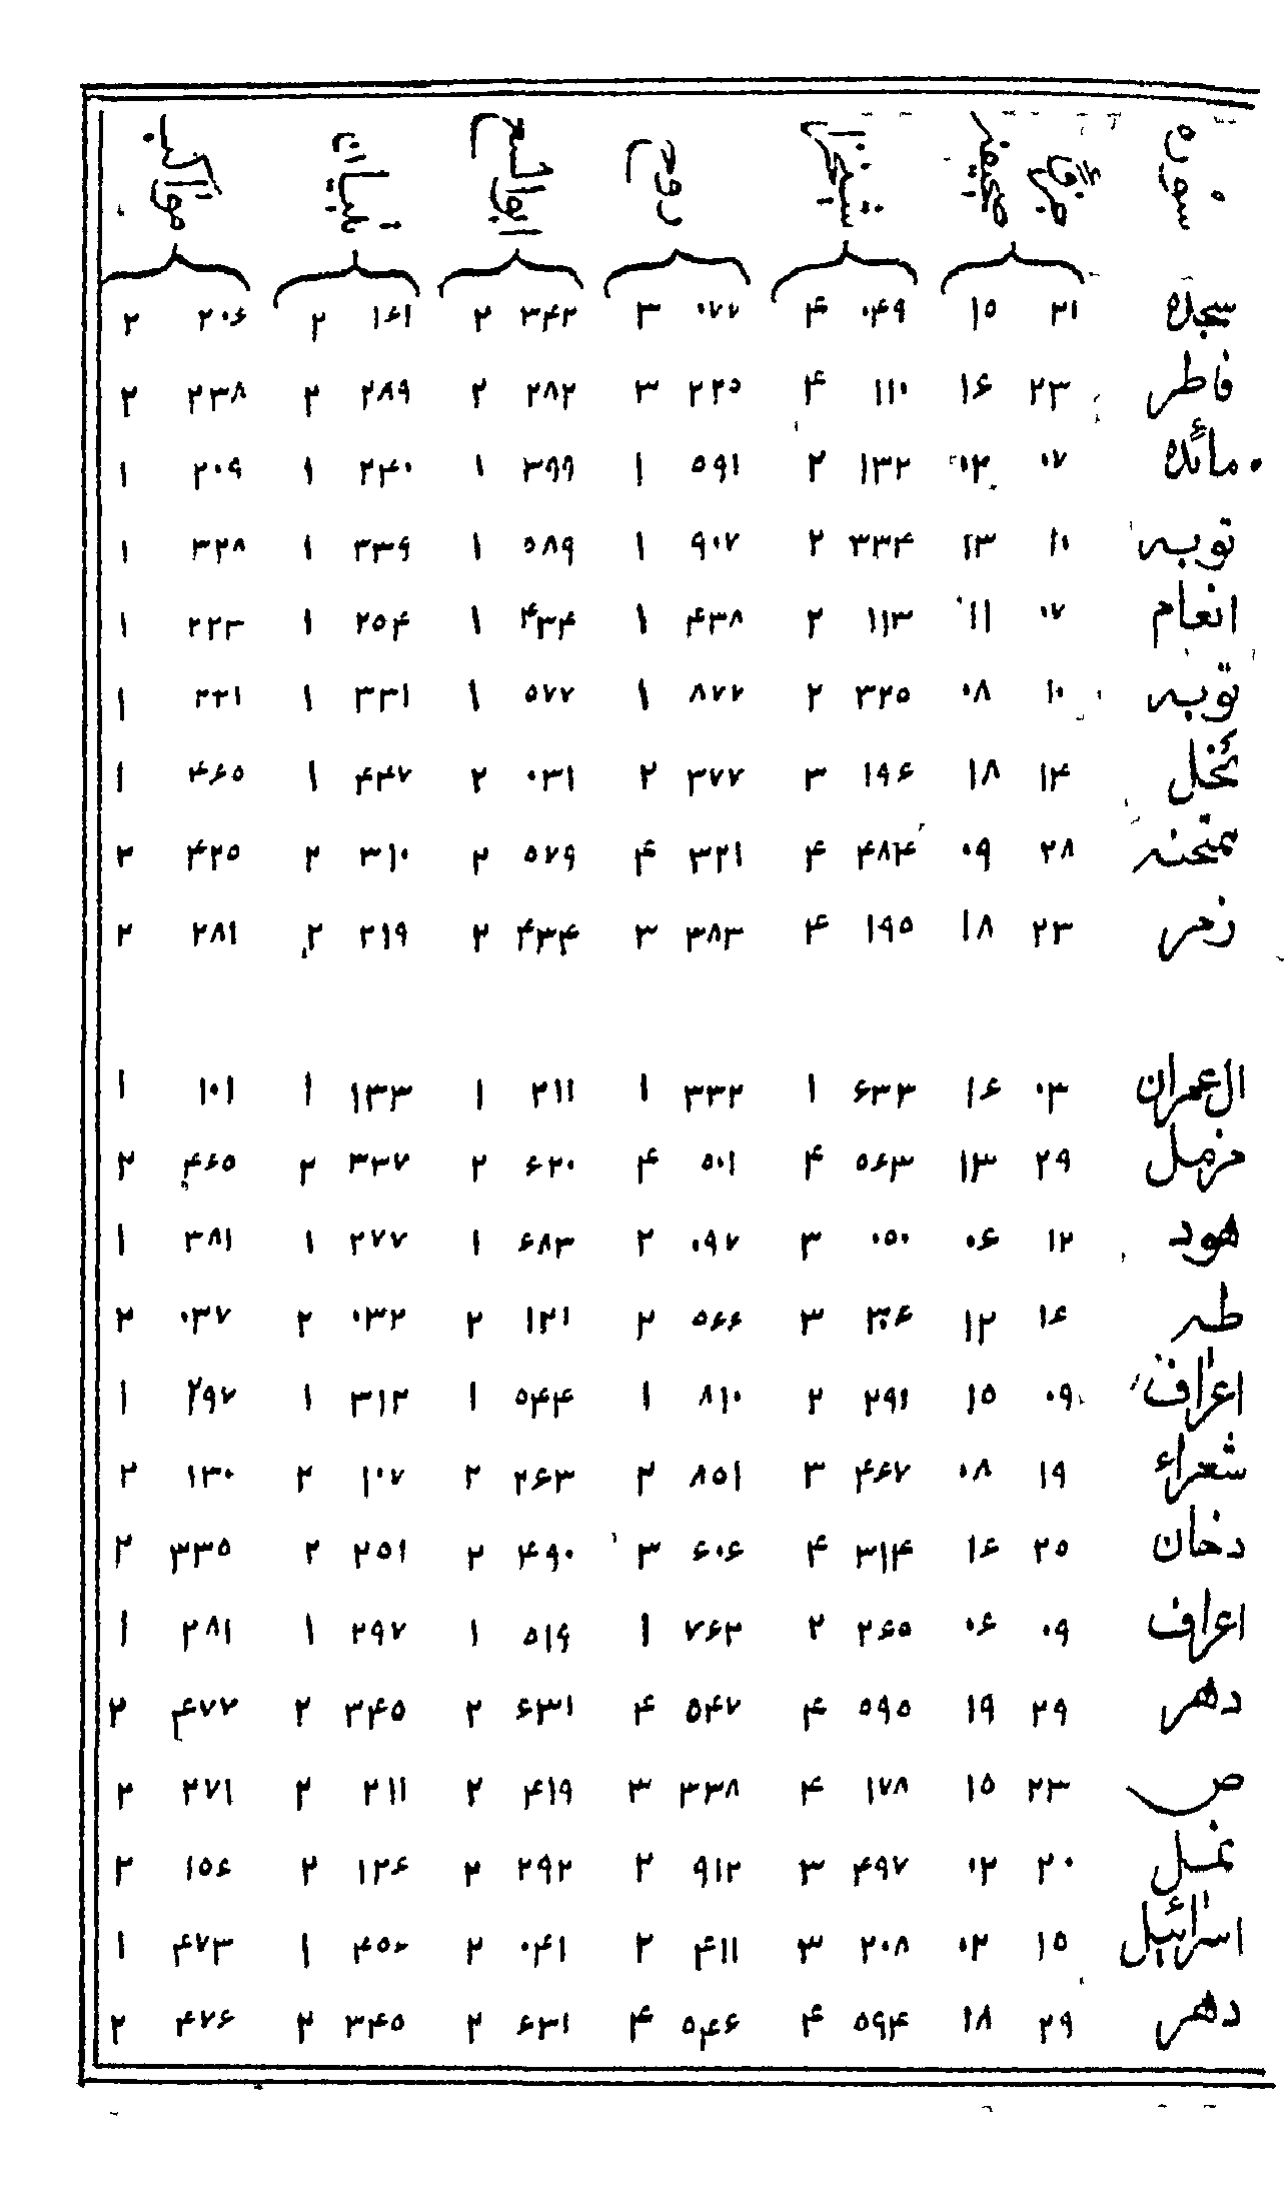 سوره جزء صحیفه روح تبیان
سجده ۲۱ ۱۵ ۰۴۹ ۴ ۰۷۷ ۳ ۳۴۲ ۲ ۱۶۱ ۲ ۲۰۶ ۲
فاطر ۲۳ ۱۶ ۱۱۰ ۴ ۲۲۵ ۳ ۲۸۲ ۲ ۲۸۹ ۲ ۲۳۸ ۲
مائده ۰۷ ۰۲ ۱۳۲ ۲ ۵۹۱ ۱ ۳۹۹ ۱ ۲۴۰ ۱ ۲۰۹ ۱
توبه ۱۰ ۱۳ ۳۳۴ ۲ ۹۰۷ ۱ ۵۸۹ ۱ ۳۳۹ ۱ ۳۲۸ ۱
انعام ۰۷ ۱۱ ۱۱۳ ۲ ۴۳۸ ۱ ۴۳۴ ۱ ۲۵۴ ۱ ۲۲۳ ۱
توبه ۱۰ ۰۸ ۳۲۵ ۲ ۸۷۲ ۱ ۵۷۷ ۱ ۳۳۱ ۱ ۳۲۱ ۱
نحل ۱۴ ۱۸ ۱۹۶ ۳ ۳۷۷ ۲ ۰۳۱ ۲ ۴۴۷ ۱ ۴۶۵ ۱
ممتحنه ۲۸ ۰۹ ۴۸۴ ۴ ۳۲۱ ۴ ۵۷۹ ۲ ۳۱۰ ۲ ۴۲۵ ۲
زمر ۲۳ ۱۸ ۱۹۵ ۴ ۳۸۳ ۳ ۴۳۴ ۲ ۲۱۹ ۲ ۲۸۱ ۲
ال عمران ۰۳ ۱۶ ۶۳۳ ۱ ۳۳۲ ۱ ۲۱۱ ۱ ۱۳۳ ۱ ۱۰۱ ۱
مزمل ۲۹ ۱۳ ۵۶۳ ۴ ۵۰۱ ۴ ۶۲۰ ۲ ۳۳۷ ۲ ۴۶۵ ۲
هود ۱۲ ۰۶ ۰۵۰ ۳ ۰۹۷ ۲ ۶۸۳ ۱ ۲۷۷ ۱ ۳۸۱ ۱
طه ۱۶ ۱۲ ۳ ۵۶۶ ۲ ۱۲۱ ۲ ۰۳۲ ۲ ۰۳۷ ۲
اعراف ۰۹ ۱۵ ۲۹۱ ۲ ۸۱۰ ۱ ۵۴۴ ۱ ۳۱۲ ۱ ۲۹۷ ۱
شعراء ۱۹ ۰۸ ۴۶۷ ۳ ۸۵۱ ۲ ۲۶۳ ۲ ۱۰۷ ۲ ۱۳۰ ۲
دخان ۲۵ ۱۶ ۳۱۴ ۴ ۶۰۶ ۳ ۴۹۰ ۲ ۲۵۱ ۲ ۳۳۵ ۲
اعراف ۰۹ ۰۶ ۲۶۵ ۲ ۷۶۲ ۱ ۵۱۹ ۱ ۲۹۷ ۱ ۲۸۱ ۱
دهر ۲۹ ۱۹ ۵۹۵ ۴ ۵۴۷ ۴ ۶۳۱ ۲ ۳۴۵ ۲ ۴۷۲ ۲
ص ۲۳ ۱۵ ۱۷۸ ۴ ۳۳۸ ۳ ۴۱۹ ۲ ۲۱۱ ۲ ۲۷۱ ۲
نمل ۲۰ ۰۲ ۴۹۷ ۳ ۹۱۲ ۲ ۲۹۲ ۲ ۱۲۶ ۲ ۱۵۶ ۲
اسرائیل ۱۵ ۰۲ ۲۰۸ ۳ ۴۱۱ ۲ ۰۴۱ ۲ ۴۵۶ ۱ ۴۷۳ ۱
دهر ۲۹ ۱۸ ۵۹۴ ۴ ۵۴۶ ۴ ۶۳۱ ۲ ۳۴۵ ۲ ۴۷۶ ۲